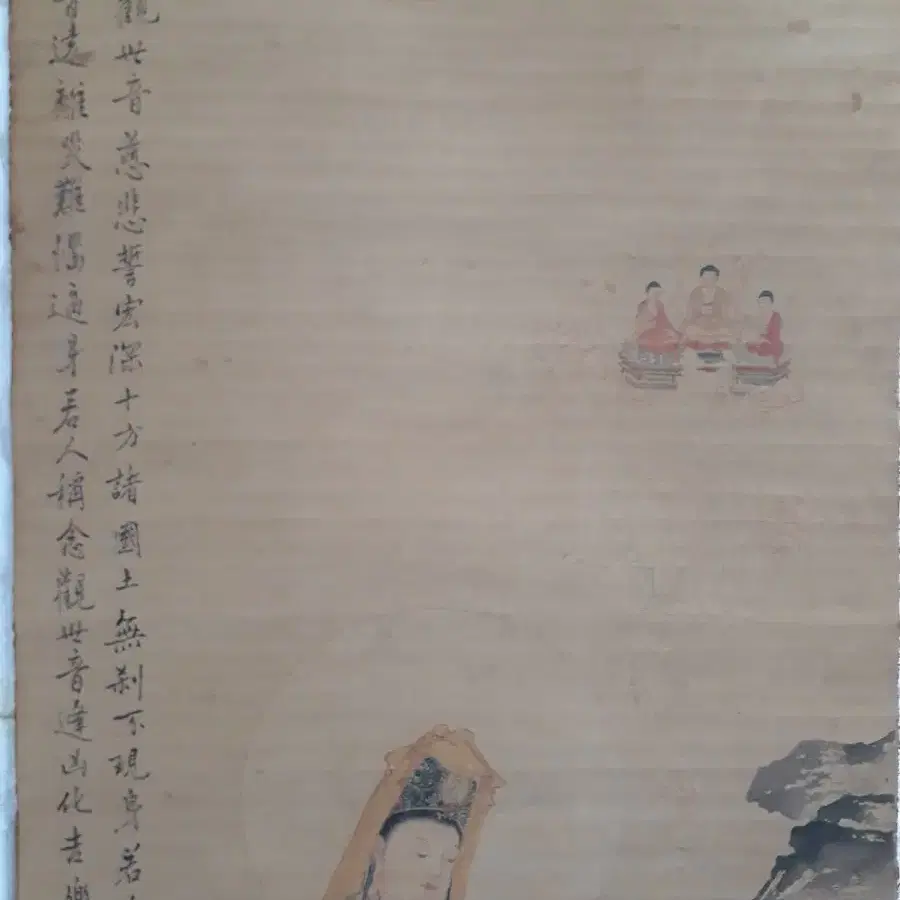 觀世音慈悲誓宏深十方諸國土無刹不現身若
音遠離災難適身若人稱念觀世音逢凶化吉